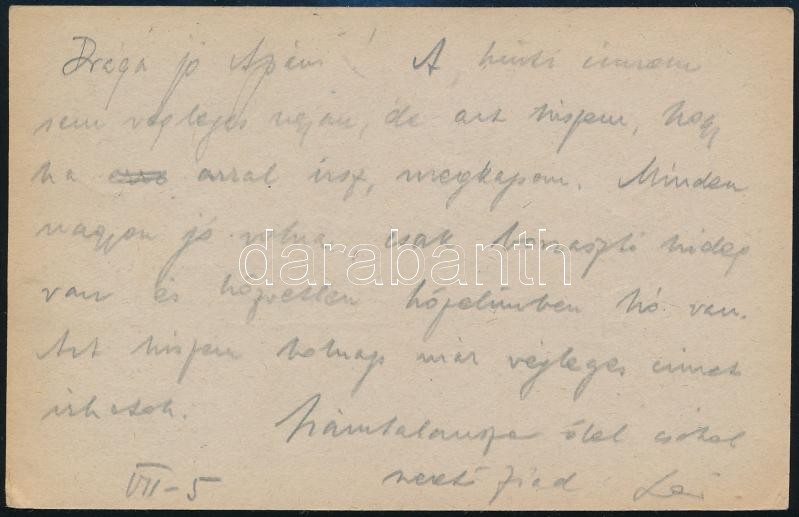 Drága jó Apám! A fenti címem
sem végleges ugyan, de azt hiszem, hogy
ha erre arral írsz, megkapom. Minden
nagyon jó volna, csak borzasztó hideg
van és közvetlen közelünkben hó van.
Azt hiszem holnap már végleges címet
írhatok.
Számtalanszor ölel csókol
szerető fiad
VII-5
darabanth